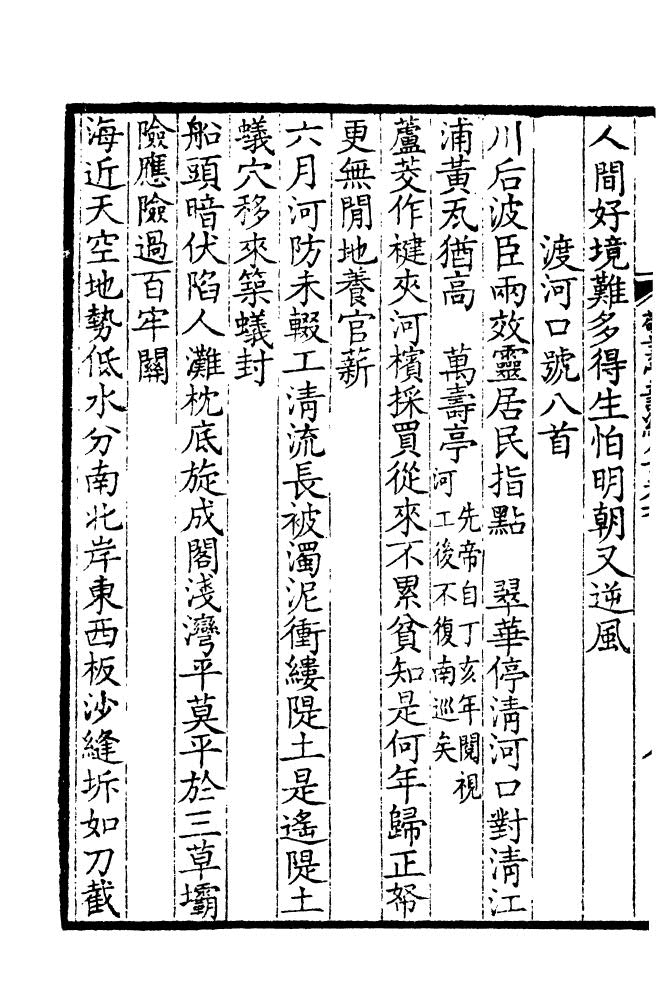 人間好境難多得生怕明朝又逆風
渡河口號八首
川后波臣兩效靈居民指點　翠華停淸河口對淸江
浦黃瓦猶高　萬壽亭先帝自丁亥年閱視
河工後不復南巡矣
蘆茭作楗夾河檳採買從來不累貧知是何年歸正帑
更無閒地養官薪
六月河防未輟工淸流長被濁泥衝縷隄土是遙隄土
蟻穴移來築蟻封
船頭暗伏陷人灘枕底旋成閣淺灣平莫平於三草壩
險應險過百牢關
海近天空地勢低水分南北岸東西板沙縫坼如刀截